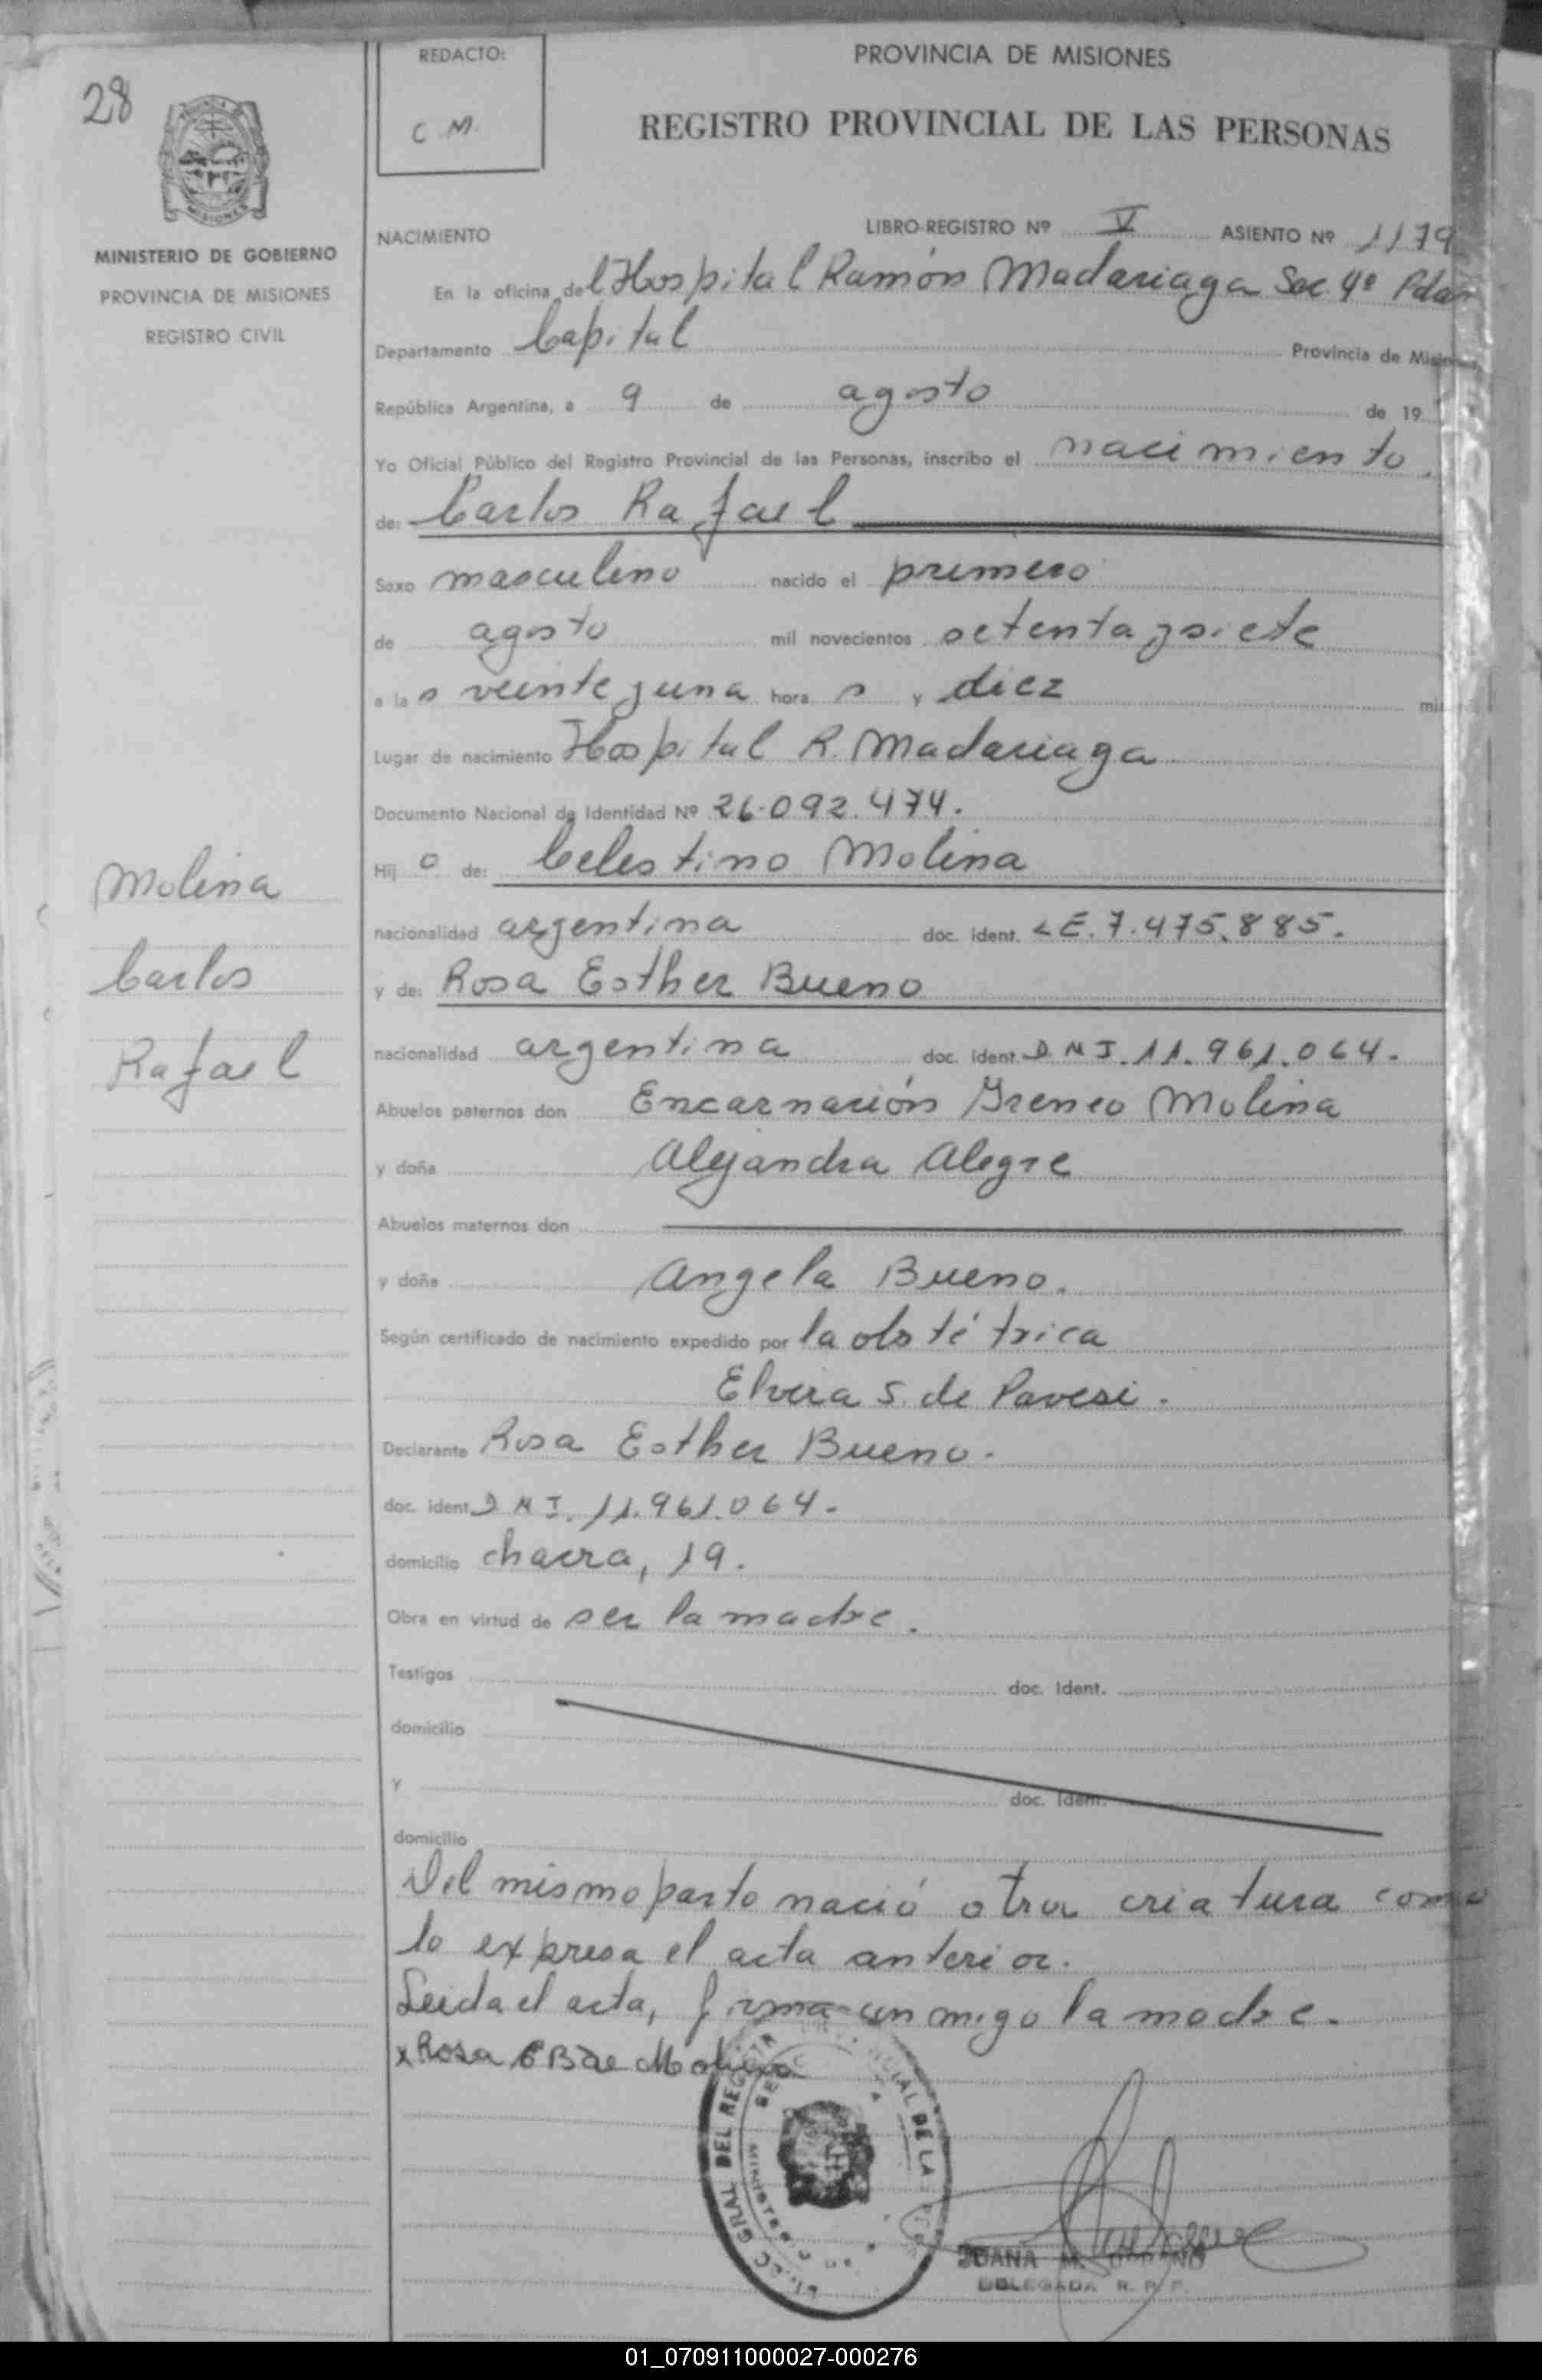 28
REDACTO:
C.M.
PROVINCIA DE MISIONES
REGISTRO PROVINCIAL DE LAS PERSONAS
MISIONES
MINISTERIO DE GOBIERNO
PROVINCIA DE MISIONES
REGISTRO CIVIL
NACIMIENTO LIBRO-REGISTRO Nº V ASIENTO Nº 1179
En la oficina del Hospital Ramón Madariaga Sec 4º Pdas
Departamento Capital Provincia de Misiones
República Argentina, a 9 de agosto de 19
Yo Oficial Público del Registro Provincial de las Personas, inscribo el nacimiento
de: Carlos Rafael
Sexo masculino nacido el primero
de agosto mil novecientos setenta y siete
a las veinte y una horas y diez mi
Lugar de nacimiento Hospital R. Madariaga
Documento Nacional de Identidad Nº 26.092.474.
Hijo de: Celestino Molina
nacionalidad argentina doc. ident. LE. 7.475.885.
y de: Rosa Esther Bueno
nacionalidad argentina doc. ident. DNI. 11.961.064.
Abuelos paternos don Encarnación Ireneo Molina
y doña Alejandra Alegre
Abuelos maternos don
y doña Angela Bueno.
Según certificado de nacimiento expedido por la obstétrica
Elvira S. de Pavesi.
Declarante Rosa Esther Bueno.
doc. ident. DNI. 11.961.064.
domicilio chacra, 19.
Obra en virtud de ser la madre.
Testigos doc. Ident.
domicilio
y doc. Ident.
domicilio
Del mismo parto nació otra criatura como
lo expresa el acta anterior.
Leida el acta, firma conmigo la madre.
x Rosa E B de Molina
Molina
Carlos
Rafael
GRAL DEL REGISTR
IAL DE LA
MINISTERIO DE
JUANA M.
DELEGADA R. P. P.
01_070911000027-000276